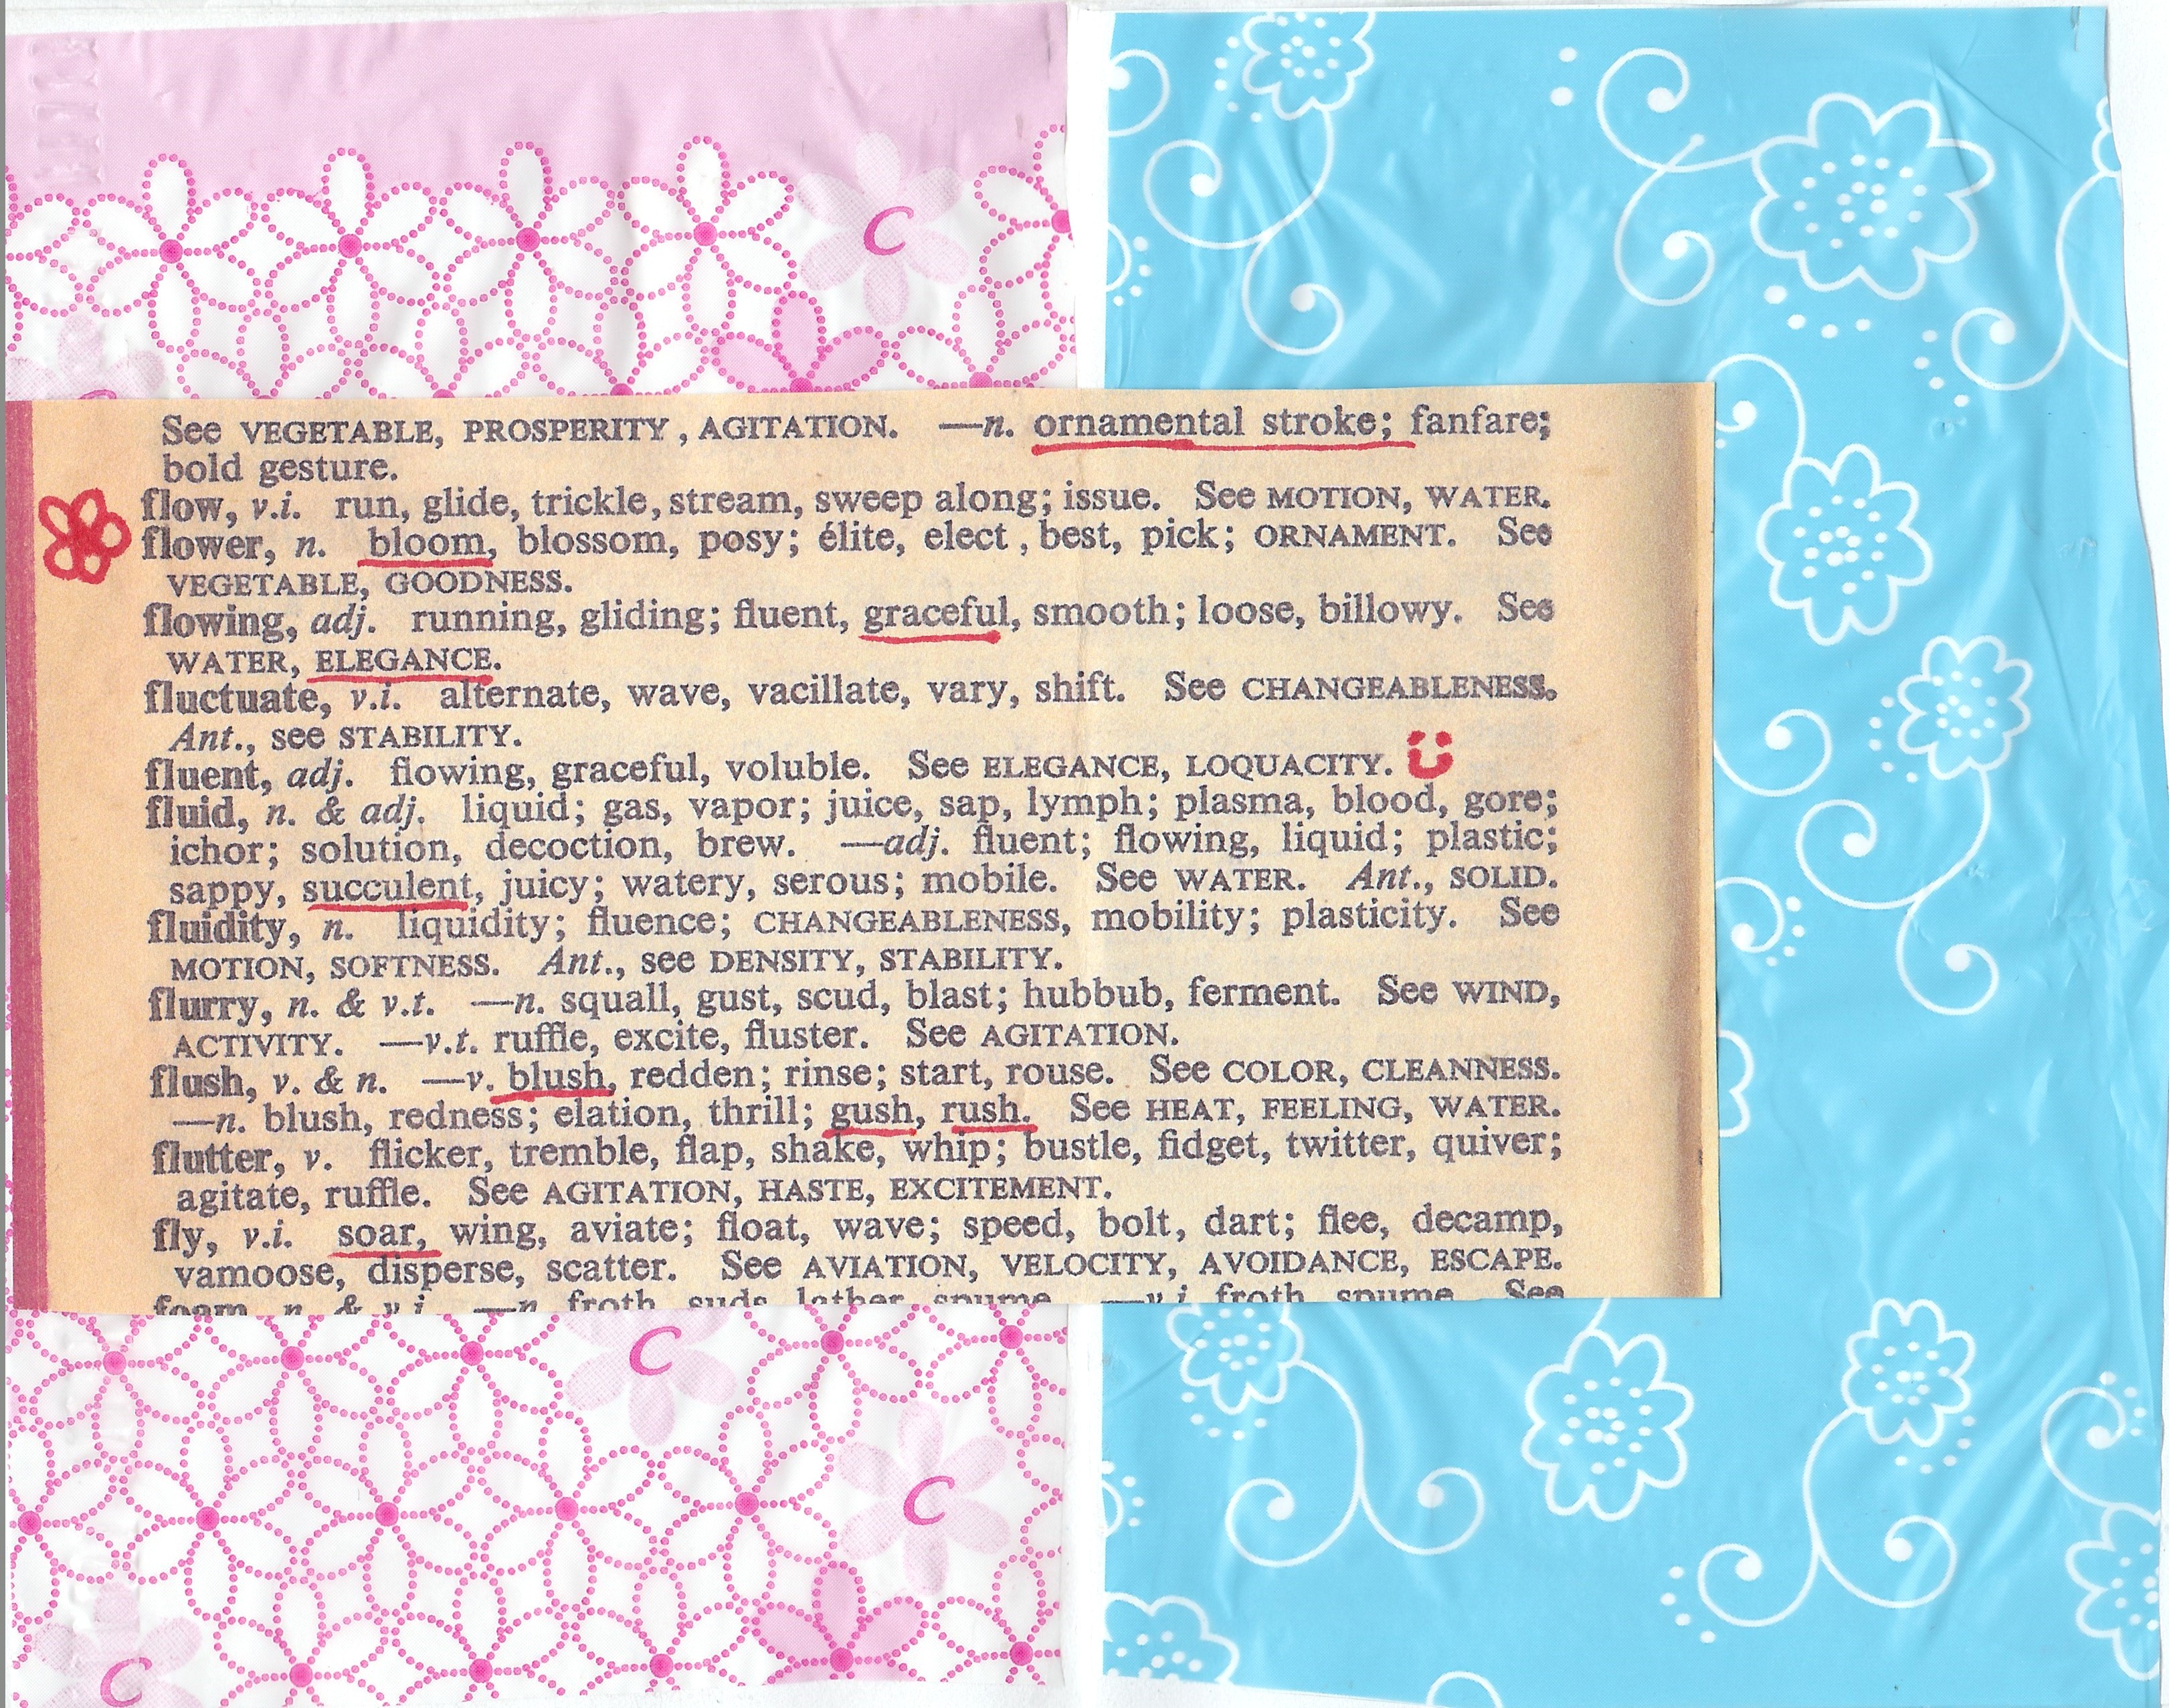 C
See VEGETABLE, PROSPERITY, AGITATION. —n. ornamental stroke; fanfare;
bold gesture.
flow, v.i. run, glide, trickle, stream, sweep along; issue. See MOTION, WATER.
flower, n. bloom, blossom, posy; élite, elect, best, pick; ORNAMENT. See
VEGETABLE, GOODNESS.
flowing, adj. running, gliding; fluent, graceful, smooth; loose, billowy. See
WATER, ELEGANCE.
fluctuate, v.i. alternate, wave, vacillate, vary, shift. See CHANGEABLENESS.
Ant., see STABILITY.
fluent, adj. flowing, graceful, voluble. See ELEGANCE, LOQUACITY.
fluid, n. & adj. liquid; gas, vapor; juice, sap, lymph; plasma, blood, gore;
ichor; solution, decoction, brew. —adj. fluent; flowing, liquid; plastic;
sappy, succulent, juicy; watery, serous; mobile. See WATER. Ant., SOLID.
fluidity, n. liquidity; fluence; CHANGEABLENESS, mobility; plasticity. See
MOTION, SOFTNESS. Ant., see DENSITY, STABILITY.
flurry, n. & v.t. —n. squall, gust, scud, blast; hubbub, ferment. See WIND,
ACTIVITY. —v.t. ruffle, excite, fluster. See AGITATION.
flush, v. & n. —v. blush, redden; rinse; start, rouse. See COLOR, CLEANNESS.
—n. blush, redness; elation, thrill; gush, rush. See HEAT, FEELING, WATER.
flutter, v. flicker, tremble, flap, shake, whip; bustle, fidget, twitter, quiver;
agitate, ruffle. See AGITATION, HASTE, EXCITEMENT.
fly, v.i. soar, wing, aviate; float, wave; speed, bolt, dart; flee, decamp,
vamoose, disperse, scatter. See AVIATION, VELOCITY, AVOIDANCE, ESCAPE.
foam, n. & v.i. —n. froth, suds, lather, spume. —v.i. froth, spume. See
C
C
C